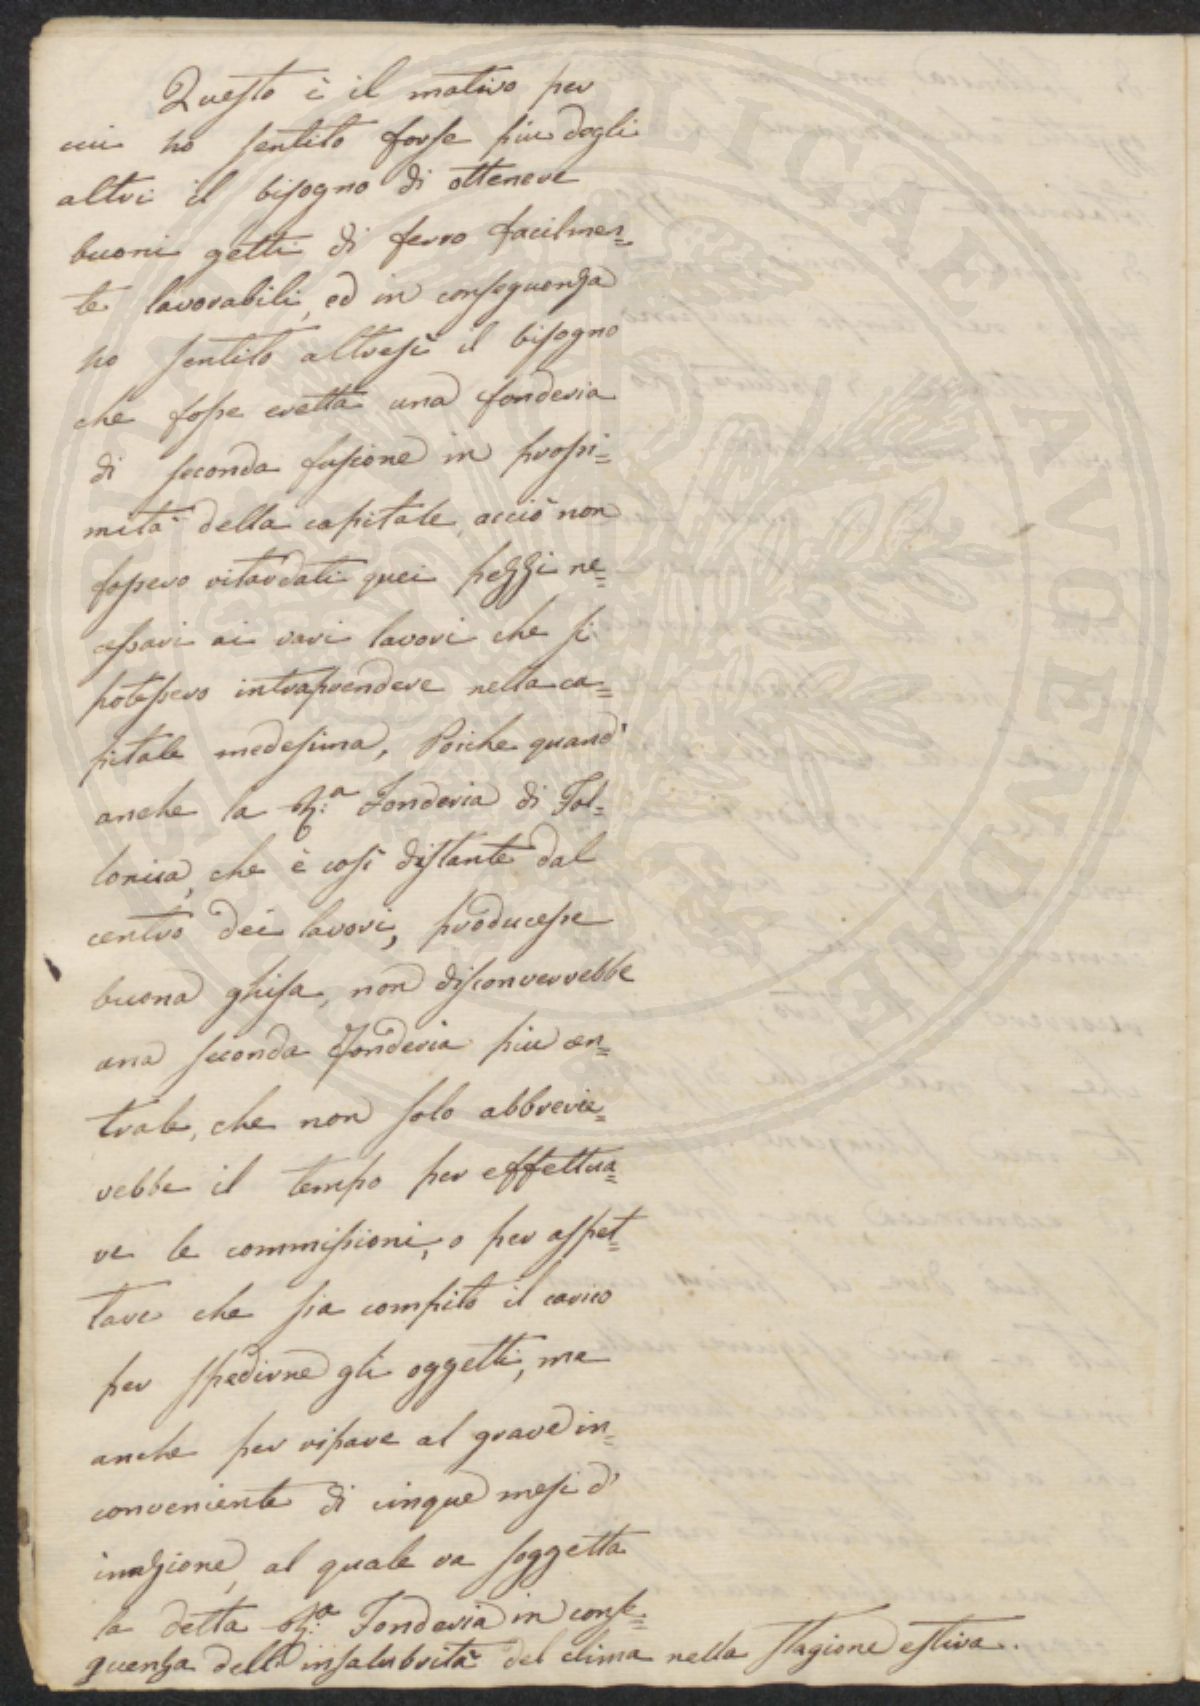 Questo è il motivo per
cui ho sentito forse piu degli
altri il bisogno di ottenere
buoni getti di ferro facilmen=
te lavorabili, ed in conseguenza
ho sentito altresì il bisogno
che fosse eretta una fonderia
di seconda fusione in prossi=
mità della capitale, acciò non
fossero ritardati quei pezzi ne=
cessari ai vari lavori che si
potessero intraprendere nella ca=
pitale medesima, Poiche quand'
anche la R.ª Fonderia di Fol=
lonica, che è così distante dal
centro dei lavori, producesse
buona ghisa, non disconverrebbe
una seconda Fonderia piu cen=
trale, che non solo abbrevie=
rebbe il tempo per effettua=
re le commissioni, o per aspet=
tare che sia compito il carico
per spedirne gli oggetti, ma
anche per riparare al grave in=
conveniente di cinque mesi d'
inazione, al quale va soggetta
la detta R.ª Fonderia in conse=
guenza dell'insalubrità del clima nella stagione estiva.
PUBLICAE AVGENDAE